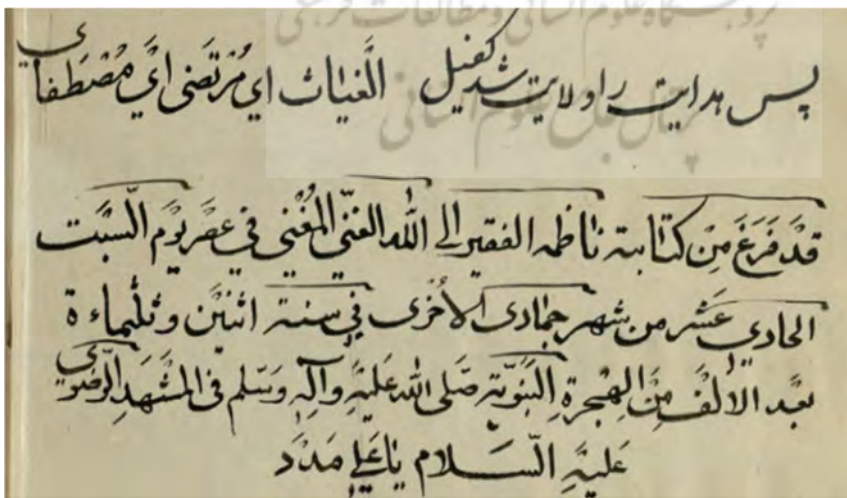 پژوهشگاه علوم انسانی و مطالعات فرهنگی
پرتال جامع علوم انسانی
پس هدایت را ولایت شد کفیل الغیاث ای مرتضی ای مصطفای
قَدْ فَرَغَ مِنْ کتابته ناظمه الفقیر الی الله الغنی المُغْنی فی عصر یَوْم السَّبْت
الحادی عَشَر من شهر جمادی الاُخْری فی سنة اثنَیْن و ثلثماءة
بَعْد الاَلْفْ مِنَ الهِجْرَةِ النَّبَوِیَّة صَلی الله عَلَیْهِ وَآلِهِ وَسَلم فی المَشْهَدِ الرَّضَوِی
عَلَیْهِ السَّلام یا عَلی مَدَد